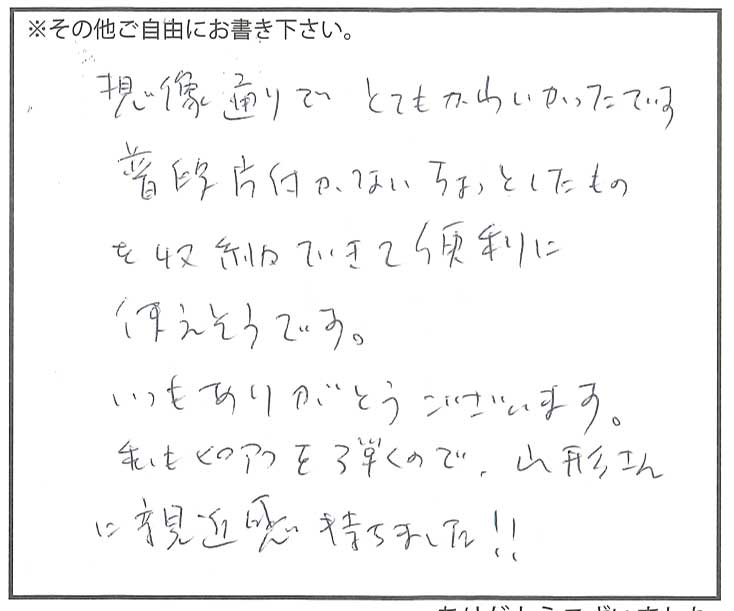 ※その他ご自由にお書き下さい。
想像通りで とてもかわいかったです
普段片付かないちょっとしたもの
を収納できて便利に
使えそうです。
いつもありがとうございます。
私もピアノを弾くので、山形さん
に親近感持ちました!!
ありがとうございました